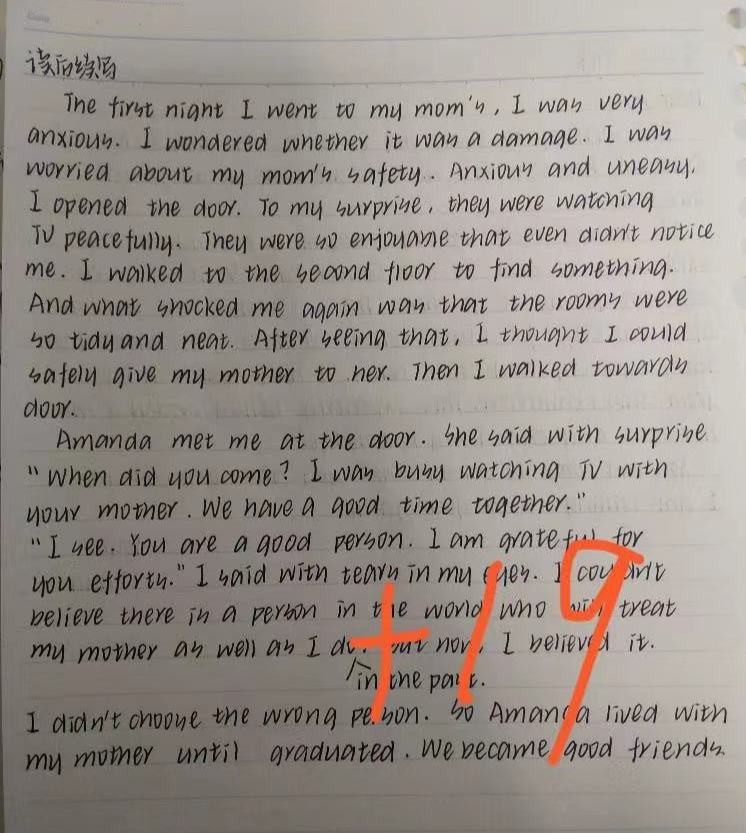 读后续写
The first night I went to my mom's, I was very
anxious. I wondered whether it was a damage. I was
worried about my mom's safety. Anxious and uneasy,
I opened the door. To my surprise, they were watching
TV peacefully. They were so enjoyame that even didn't notice
me. I walked to the second floor to find something.
And what shocked me again was that the rooms were
so tidy and neat. After seeing that, I thought I could
safely give my mother to her. Then I walked towards
door.
Amanda met me at the door. She said with surprise
"When did you come? I was busy watching TV with
your mother. We have a good time together."
"I see. You are a good person. I am grateful for
you efforts." I said with tears in my eyes. I couldn't
believe there is a person in the world who will treat
my mother as well as I do, but now, I believed it.
in the past.
I didn't choose the wrong person. So Amanda lived with
my mother until graduated. We became good friends.
+19